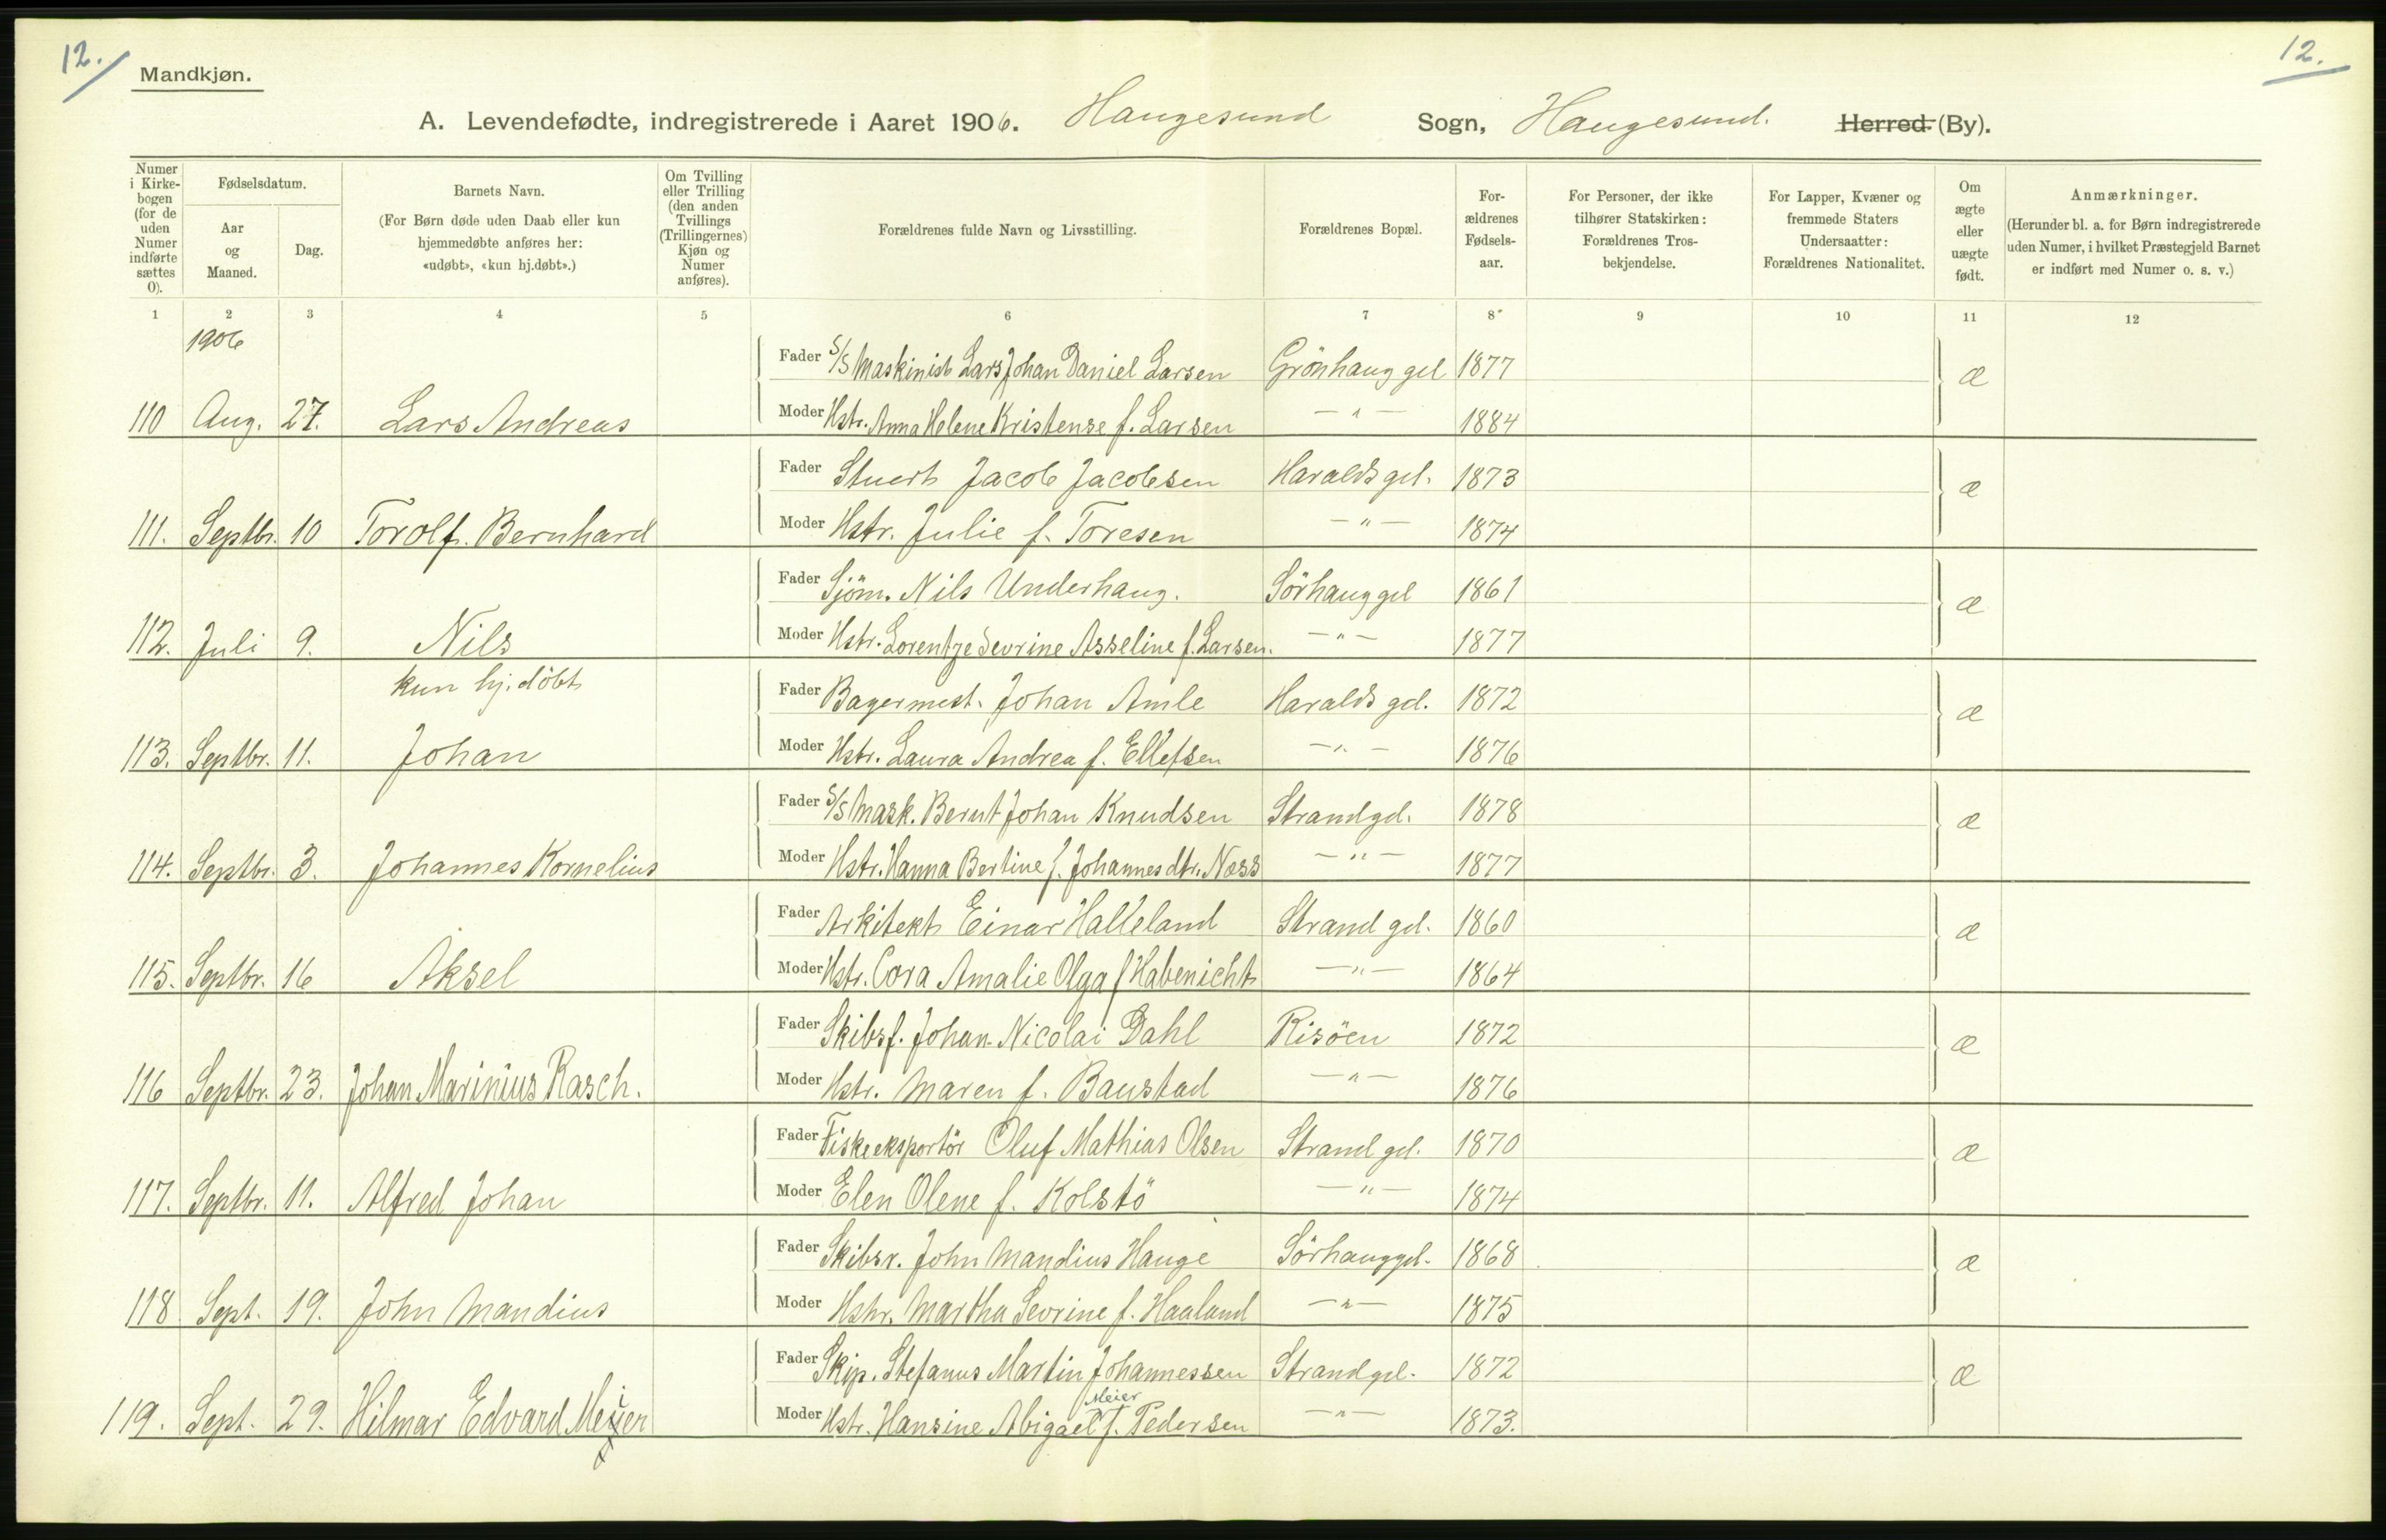 12.
12.
Mandkjøn.
A. Levendefødte, indregistrerede i Aaret 1906. Haugesund Sogn, Haugesund. Herred (By).
Numer i Kirke-bogen (for de uden Numer indførte sættes 0).
Fødselsdatum.
Aar og Maaned.
Dag.
Barnets Navn.
(For Børn døde uden Daab eller kun hjemmedøbte anføres her: «udøbt», «kun hj.døbt».)
Om Tvilling eller Trilling (den anden Tvillings (Trillingernes) Kjøn og Numer anføres).
Forældrenes fulde Navn og Livsstilling.
Forældrenes Bopæl.
For-ældrenes Fødsels-aar.
For Personer, der ikke tilhører Statskirken: Forældrenes Tros-bekjendelse.
For Lapper, Kvæner og fremmede Staters Undersaatter: Forældrenes Nationalitet.
Om ægte eller uægte født.
Anmærkninger.
(Herunder bl. a. for Børn indregistrerede uden Numer, i hvilket Præstegjeld Barnet er indført med Numer o. s. v.)
1 2 3 4 5 6 7 8 9 10 11 12
1906
Fader S/S Maskinist Lars Johan Daniel Larsen Grönhaug gd 1877 æ
110 Aug. 27. Lars Andreas Moder Hstr. Anna Helene Kristense f. Larsen — " — 1884
Fader Stuert Jacob Jacobsen Haralds gd. 1873 æ
111. Septbr. 10 Torolf Bernhard Moder Hstr. Julie f. Toresen — " — 1874
Fader Sjöm. Nils Underhaug. Sörhaug gd 1861 æ
112. Juli 9. Nils Moder Hstr. Lorentze Sevrine Asseline f. Larsen. — " — 1877
kun hj. döbt Fader Bagermest. Johan Amle Haralds gd. 1872 æ
113. Septbr. 11. Johan Moder Hstr. Laura Andrea f. Ellefsen — " — 1876
Fader S/S Mask. Bernt Johan Knudsen Strandgd. 1878 æ
114. Septbr. 3. Johannes Kornelius Moder Hstr. Hanna Bertine f. Johannesdtr. Næss — " — 1877
Fader Arkitekt Einar Halleland Strand gd. 1860 æ
115. Septbr. 16 Aksel Moder Hstr. Cora Amalie Olga f Habenicht — " — 1864
Fader Skibsf. Johan Nicolai Dahl Risöen 1872 æ
116 Septbr. 23. Johan Marinius Rasch. Moder Hstr. Maren f. Baustad — " — 1876
Fader Fiskeeksportör Oluf Mathias Olsen Strand gd. 1870 æ
117. Septbr. 11. Alfred Johan Moder Elen Olene f. Kolstö — " — 1874
Fader Skibsr. John Mandius Hauge Sörhauggd. 1868 æ
118 Sept. 19. John Mandius Moder Hstr. Martha Sevrine f. Haaland — " — 1875
Fader Skip. Stefanus Martin Johannessen Strandgd. 1872 æ
Meier
119. Sept. 29. Hilmar Edvard Meier Moder Hstr. Hansine Abigael f. Pedersen — " — 1873.